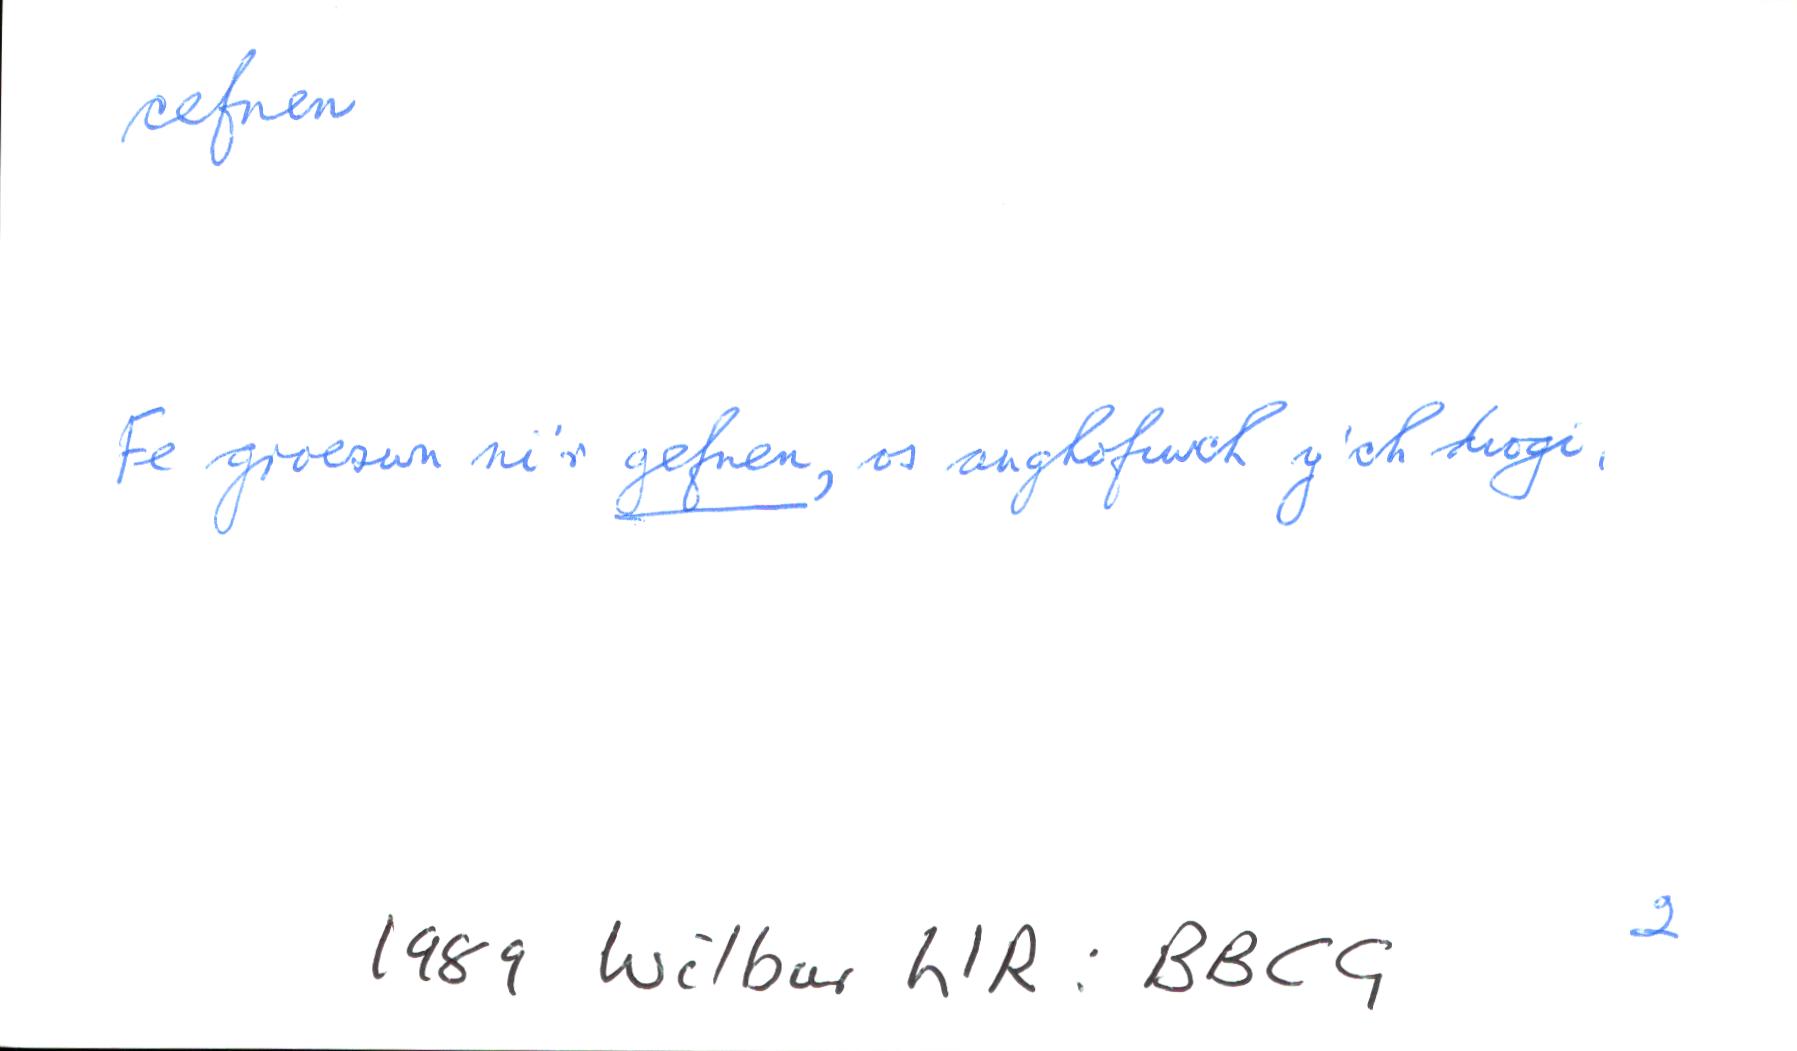 cefnen
Fe groeswn ni'r gefnen, os anghofiwch y'ch brogi.
2
1989 Wilbur LlR: BBCG